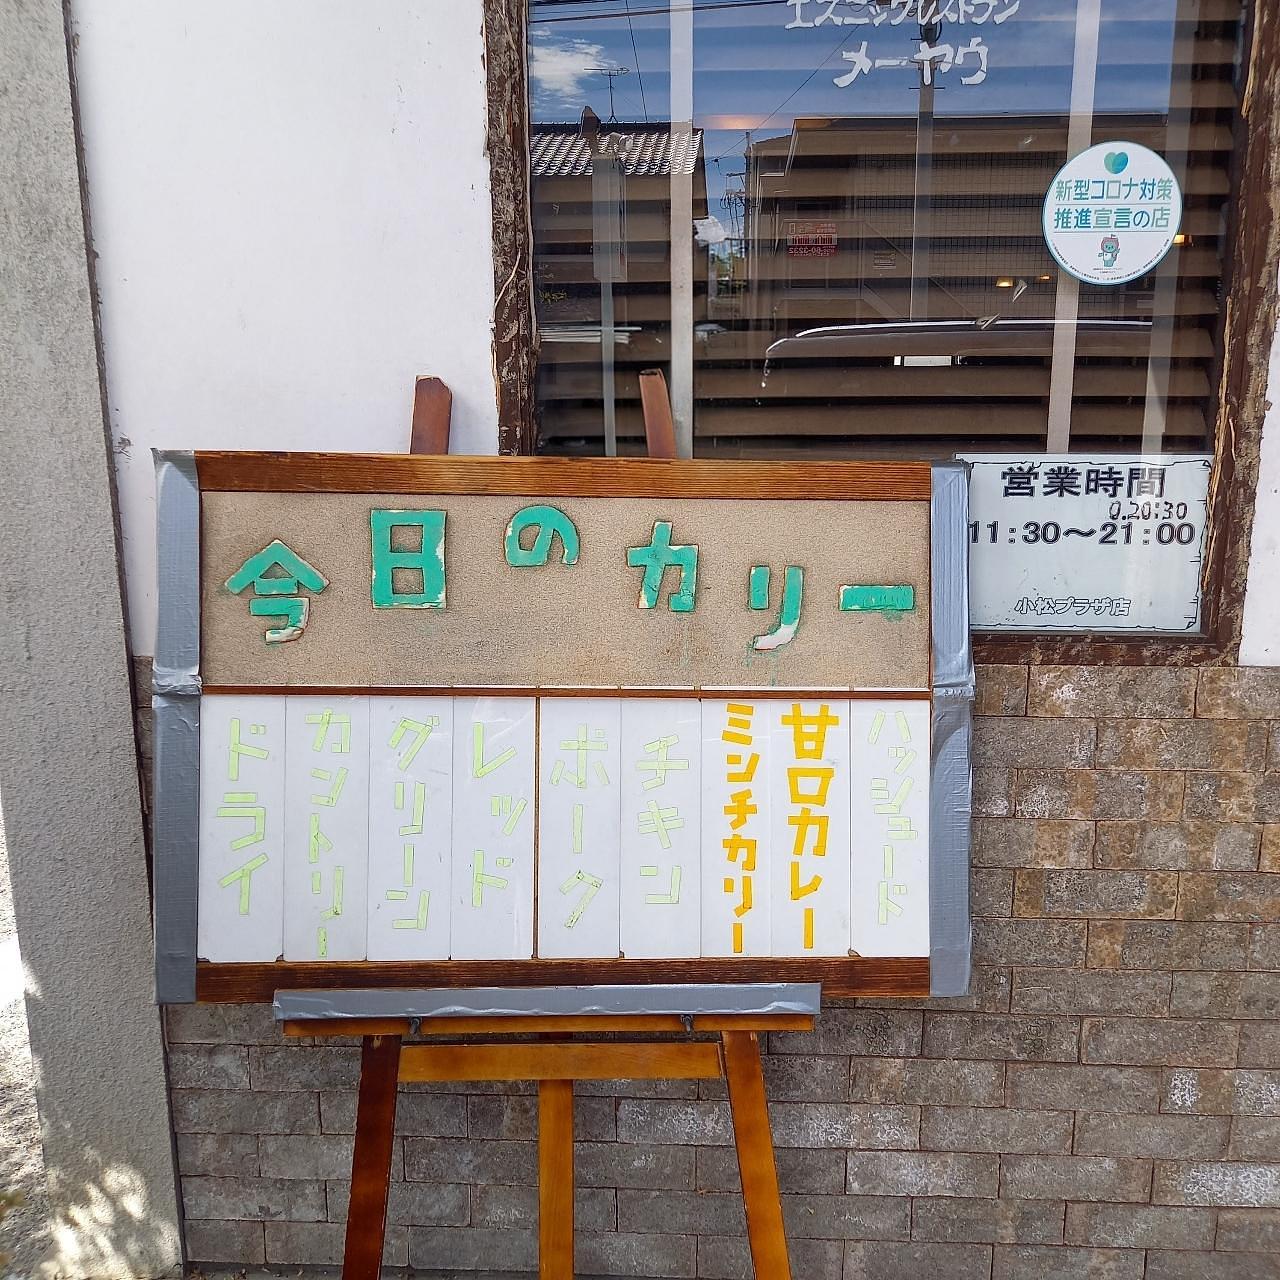 エスニックレストラン
メーヤウ
新型コロナ対策
推進宣言の店
営業時間
O.20:30
11:30〜21:00
小松プラザ店
今日のカリー
ハッシュード
甘口カレー
ミンチカリー
チキン
ポーク
レッド
グリーン
カントリー
ドライ